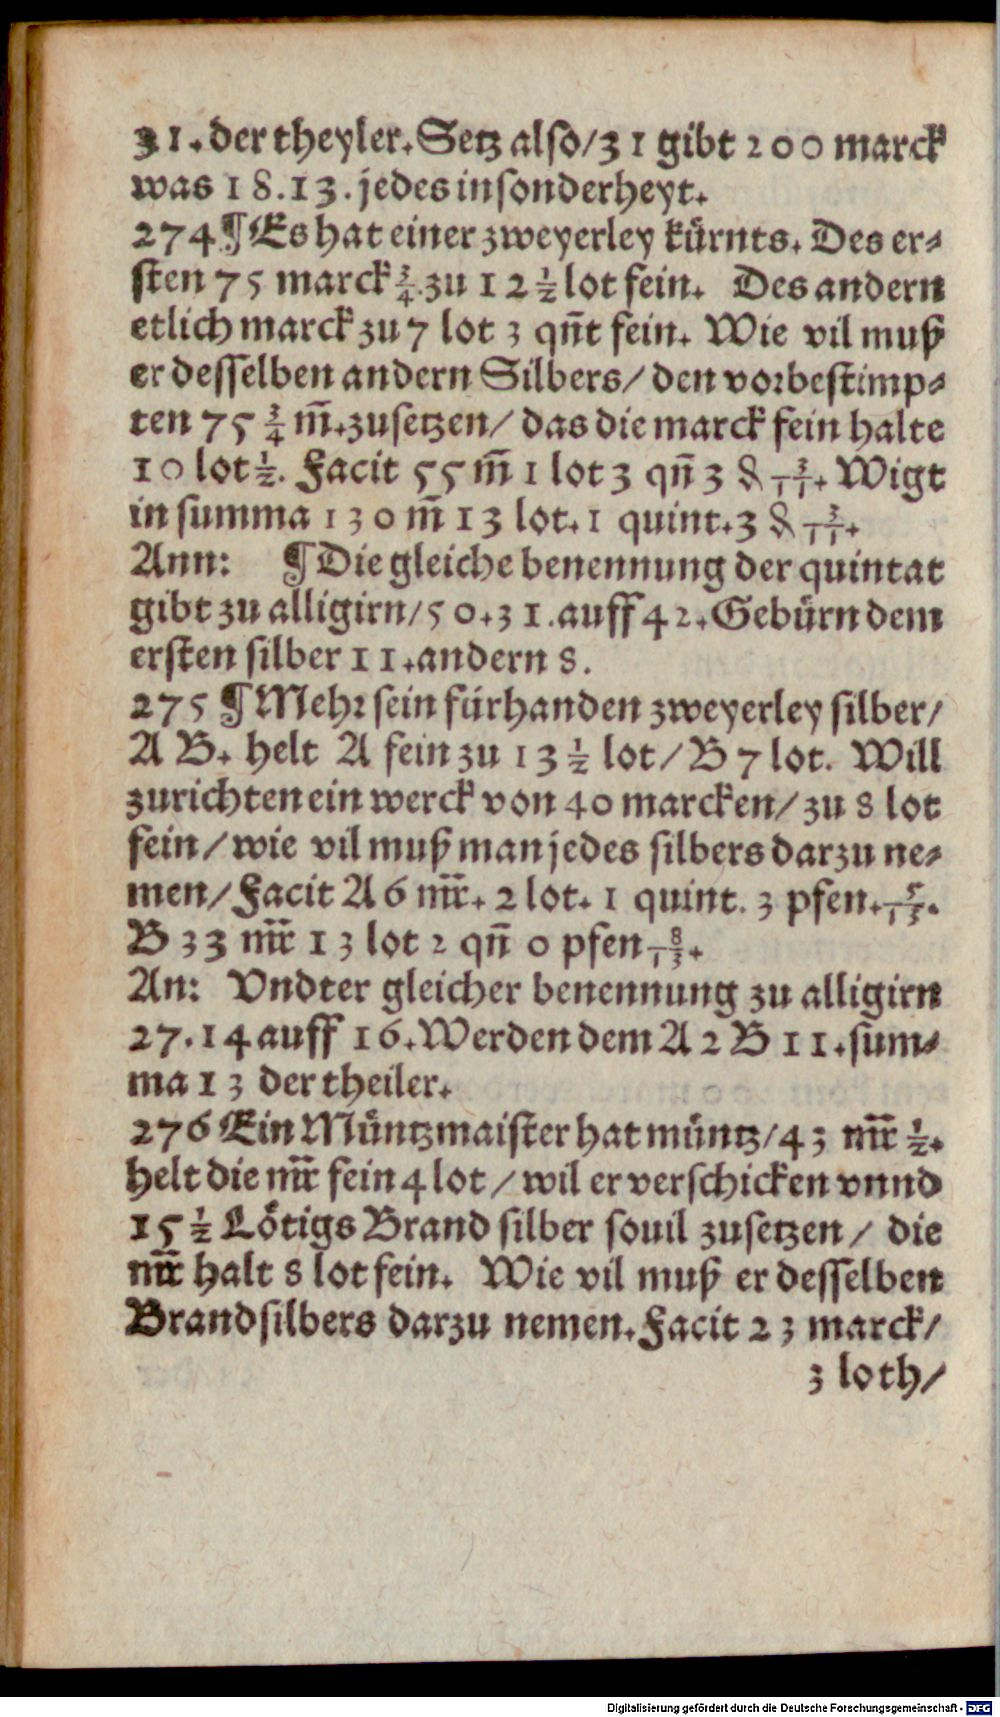 31. der theyler. Setz also/31 gibt 200 marck
was 18.13. jedes insonderheyt.
274 ¶ Es hat einer zweyerley kürnts. Des er⸗
sten 75 marck ¾ zu 12 ½ lot fein. Des andern
etlich marck zu 7 lot 3 qñt fein. Wie vil muß
er desselben andern Silbers/ den vorbestimp⸗
ten 75 ¾ m̄. zusetzen/ das die marck fein halte
10 lot ½. Facit 55 m̄ 1 lot 3 qñ 3 ₰ 3/11. Wigt
in summa 130 m̄ 13 lot. 1 quint. 3 ₰ 3/11.
Ann: ¶ Die gleiche benennung der quintat
gibt zu alligirn/50.31. auff 42. Gebürn dem
ersten silber 11. andern 8.
275 ¶ Mehr sein fürhanden zweyerley silber/
A B. helt A fein zu 13 ½ lot/ B 7 lot. Will
zurichten ein werck von 40 marcken/ zu 8 lot
fein/ wie vil muß man jedes silbers darzu ne⸗
men/ Facit A 6 mr̄. 2 lot. 1 quint. 3 pfen. 5/13.
B 33 mr̄ 13 lot 2 qñ 0 pfen 8/13.
An: Vndter gleicher benennung zu alligirn
27.14 auff 16. Werden dem A 2 B 11. sum⸗
ma 13 der theiler.
276 Ein Müntzmaister hat müntz/43 mr̄ ½.
helt die mr̄ fein 4 lot/ wil er verschicken vnnd
15 ½ Lötigs Brand silber souil zusetzen/ die
mr̄ halt 8 lot fein. Wie vil muß er desselben
Brandsilbers darzu nemen. Facit 23 marck/
3 loth/
Digitalisierung gefördert durch die Deutsche Forschungsgemeinschaft - DFG